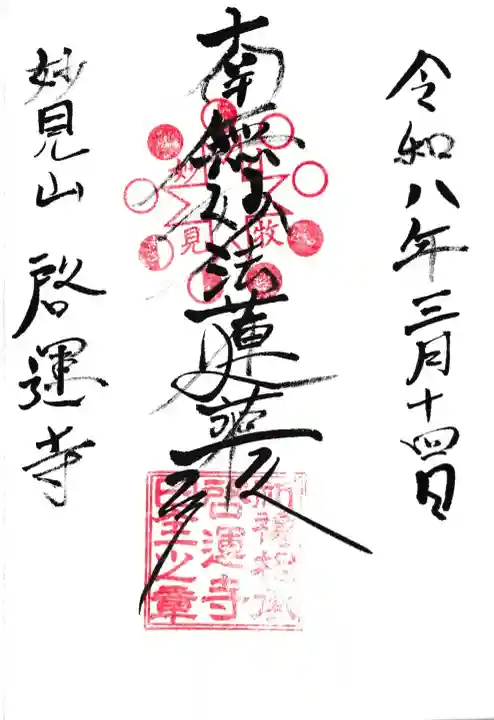 令和八年三月十四日
南無妙法蓮華経
妙見
牧
妙見山 啓運寺
啓運寺
之章